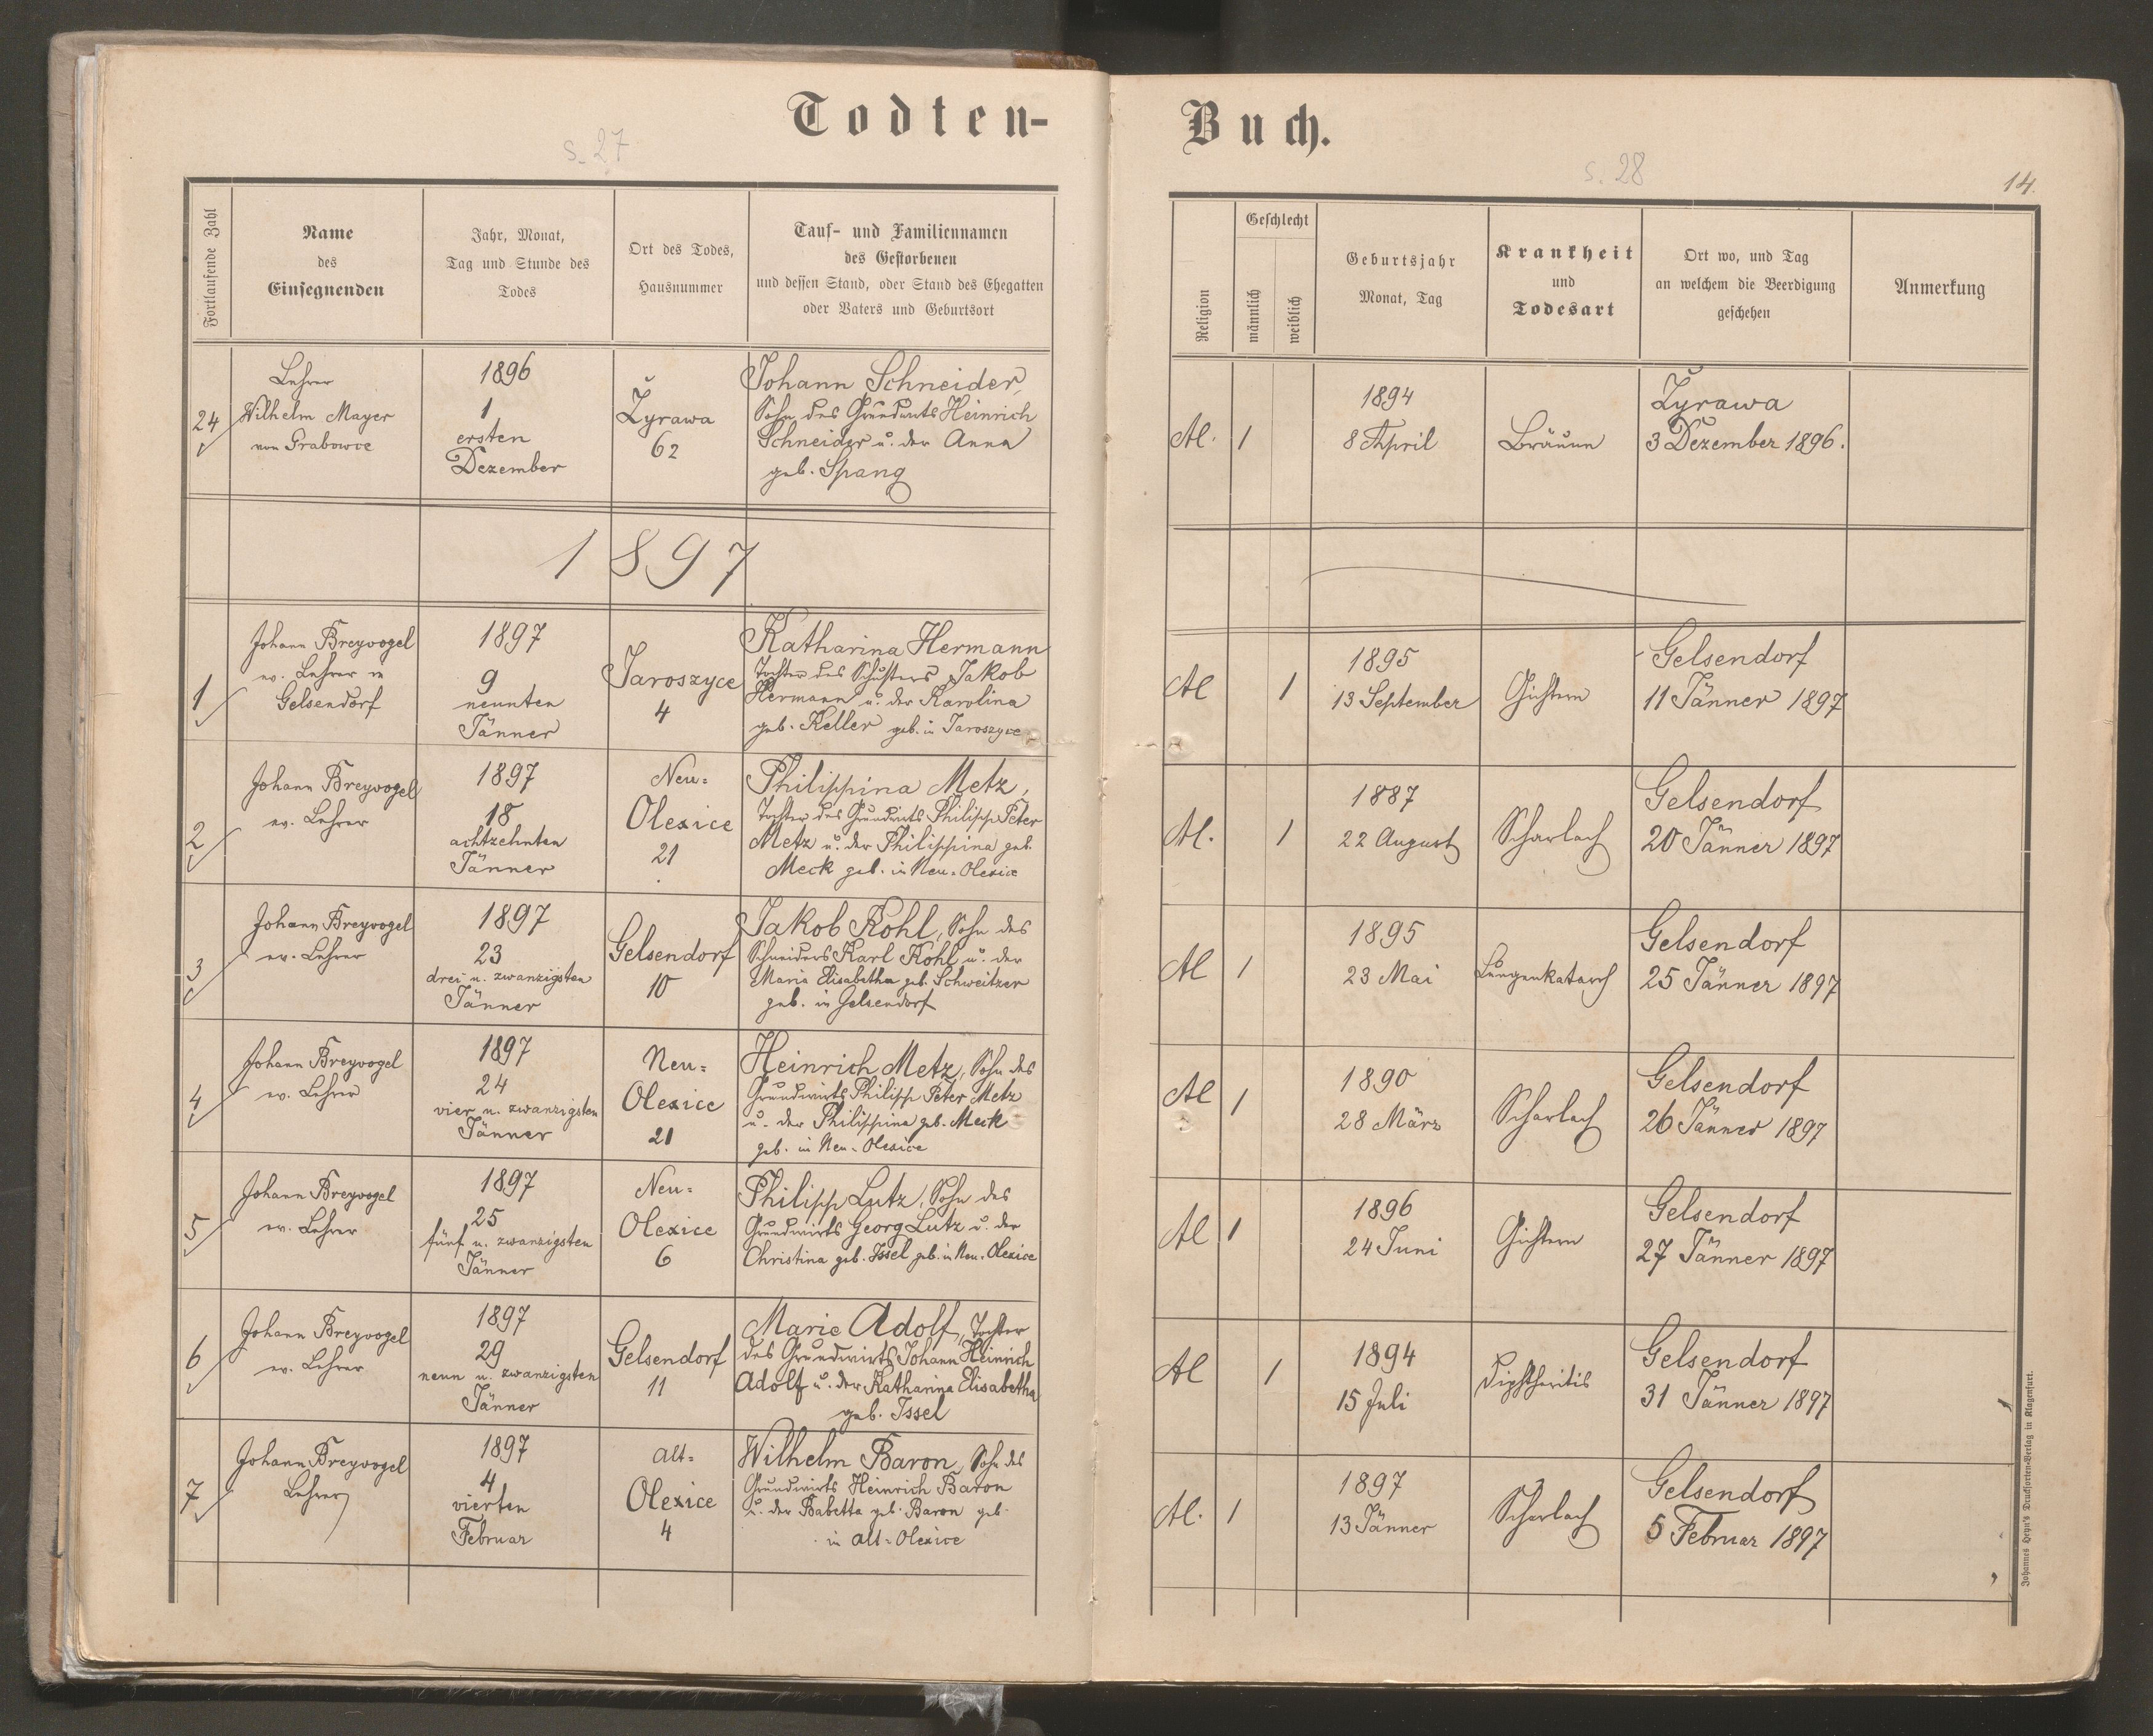 Todten-
Buch.
s. 27
s. 28
14.
Fortlaufende Zahl
Name
des
Einsegnenden
Jahr, Monat,
Tag und Stunde des
Todes
Ort des Todes,
Hausnummer
Tauf- und Familiennamen
des Gestorbenen
und dessen Stand, oder Stand des Ehegatten
oder Vaters und Geburtsort
Religion
Geschlecht
männlich
weiblich
Geburtsjahr
Monat, Tag
Krankheit
und
Todesart
Ort wo, und Tag
an welchem die Beerdigung
geschehen
Anmerkung
24
Lehrer
Wilhelm Mayer
von Grabowce
1896
1
ersten
Dezember
Żyrawa
62
Johann Schneider,
Sohn des Grundwirts Heinrich
Schneider u. der Anna
geb. Spang
AC.
1
1894
8 April
Bräune
Żyrawa
3 Dezember 1896.
1897
1
Johann Breyvogel
ev. Lehrer in
Gelsendorf
1897
9
neunten
Jänner
Jaroszyce
4
Katharina Hermann
Tochter des Schusters Jakob
Hermann u. der Karolina
geb. Keller geb. in Jaroszyce
AC
1
1895
13 September
Gichtern
Gelsendorf
11 Jänner 1897
2
Johann Breyvogel
ev. Lehrer
1897
18
achtzehnten
Jänner
Neu-
Olexice
21
Philippina Metz,
Tochter des Grundwirts Philipp Peter
Metz u. der Philippina geb.
Meck geb. in Neu-Olexice
AC.
1
1887
22 August
Scharlach
Gelsendorf
20 Jänner 1897
3
Johann Breyvogel
ev. Lehrer
1897
23
drei u. zwanzigsten
Jänner
Gelsendorf
10
Jakob Kohl, Sohn des
Schneiders Karl Kohl u. der
Maria Elisabetha geb. Schweitzer
geb. in Gelsendorf
AC
1
1895
23 Mai
Lungenkatarh
Gelsendorf
25 Jänner 1897
4
Johann Breyvogel
ev. Lehrer
1897
24
vier u. zwanzigsten
Jänner
Neu-
Olexice
21
Heinrich Metz, Sohn des
Grundwirts Philipp Peter Metz
u. der Philippina geb. Meck
geb. in Neu-Olexice
AC
1
1890
28 März
Scharlach
Gelsendorf
26 Jänner 1897
5
Johann Breyvogel
ev. Lehrer
1897
25
fünf u. zwanzigsten
Jänner
Neu-
Olexice
6
Philipp Lutz, Sohn des
Grundwirts Georg Lutz u. der
Christina geb. Issel geb. in Neu-Olexice
AC
1
1896
24 Juni
Gichtern
Gelsendorf
27 Jänner 1897
6
Johann Breyvogel
ev. Lehrer
1897
29
neun u. zwanzigsten
Jänner
Gelsendorf
11
Marie Adolf, Tochter
des Grundwirts Johann Heinrich
Adolf u. der Katharina Elisabetha
geb. Issel
AC
1
1894
15 Juli
Diphtheritis
Gelsendorf
31 Jänner 1897
7
Johann Breyvogel
Lehrer
1897
4
vierten
Februar
Alt-
Olexice
4
Wilhelm Baron, Sohn des
Grundwirts Heinrich Baron
u. der Babetta geb. Baron geb.
in Alt-Olexice
AC.
1
1897
13 Jänner
Scharlach
Gelsendorf
5 Februar 1897
Johannes Heyn's Drucksorten-Verlag in Klagenfurt.